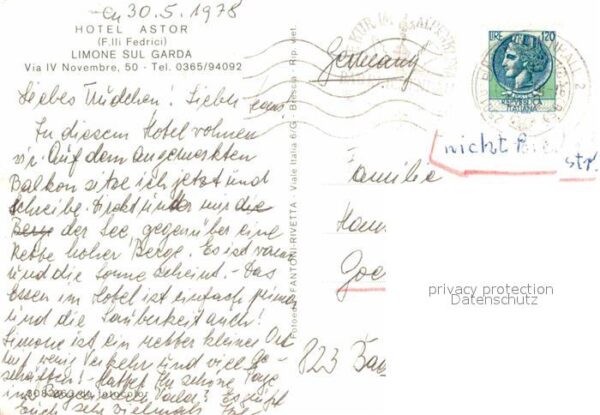 en 30.5.1978
HOTEL ASTOR
(F.lli Fedrici)
LIMONE SUL GARDA
Via IV Novembre, 50 - Tel. 0365/94092
Liebes Trudchen! Lieber
In diesem Hotel wohnen
wir. Auf dem angemerkten
Balkon sitze ich jetzt und
schreibe. Direkt unter mir die
Berge der See, gegenüber eine
Kette hoher Berge. Es ist warm
und die Sonne scheint. - Das
Essen im Hotel ist einfach prima
und die Sauberkeit auch!
Limone ist ein netter kleiner Ort
mit wenig Verkehr und viel Ge-
schäften! - Hattet Ihr schöne Tage
im Vater? Es grüßt
Euch sehr vielmals
Fotoed. FANTONI-RIVETTA - Viale Italia 6/G - Brescia - Rip. viet.
Germany
LIRE 120
REPUBBLICA
ITALIANA
nicht
str.
Familie
Goe
privacy protection
Datenschutz